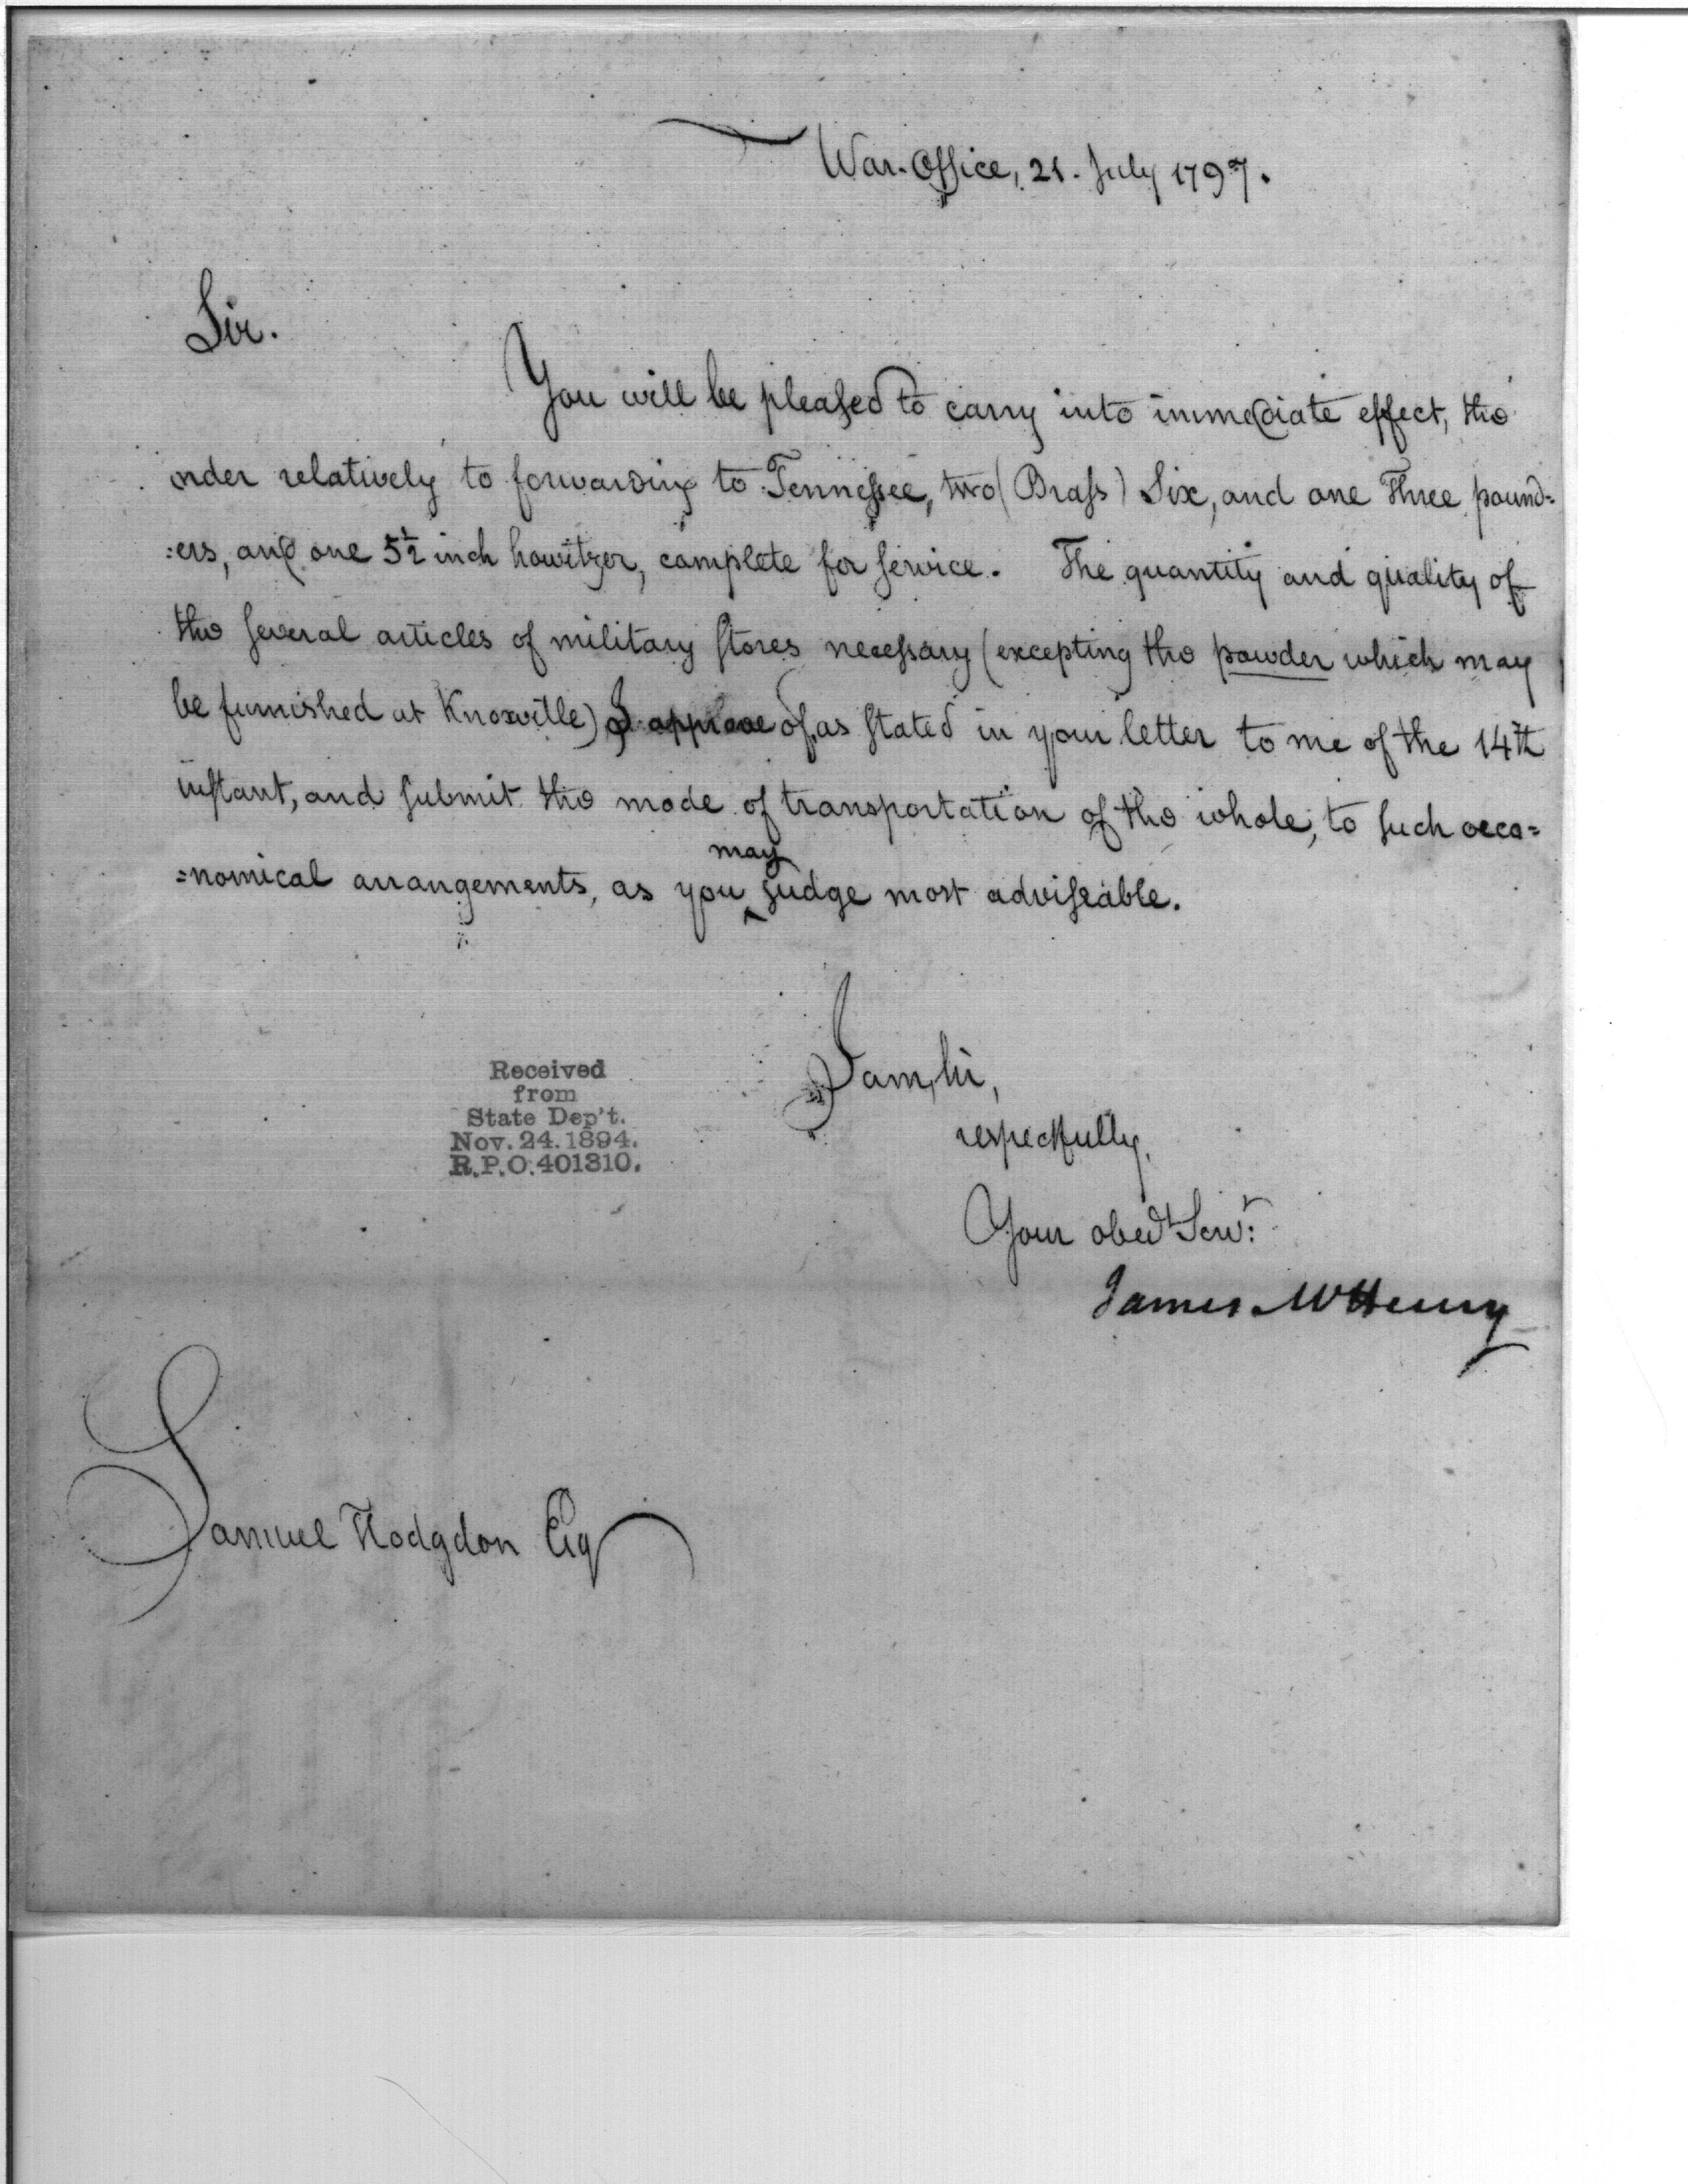 War-Office, 21. July 1797.
Sir.
You will be pleased to carry into immediate effect, the
order relatively to forwarding to Tennessee, two (Brass) Six, and one Three pound=
=ers, and one 5½ inch howitzer, complete for service. The quantity and quality of
the several articles of military stores necessary (excepting the powder which may
be furnished at Knoxville) I approve of, as stated in your letter to me of the 14th
instant, and submit the mode of transportation of the whole, to such oeco=
may
=nomical arrangements, as you ^ judge most adviseable.
I am, sir,
respectfully,
Your obedt Servt:
James McHenry
Received
from
State Dep't.
Nov. 24. 1894.
R.P.O. 401310.
Samuel Hodgdon Esq